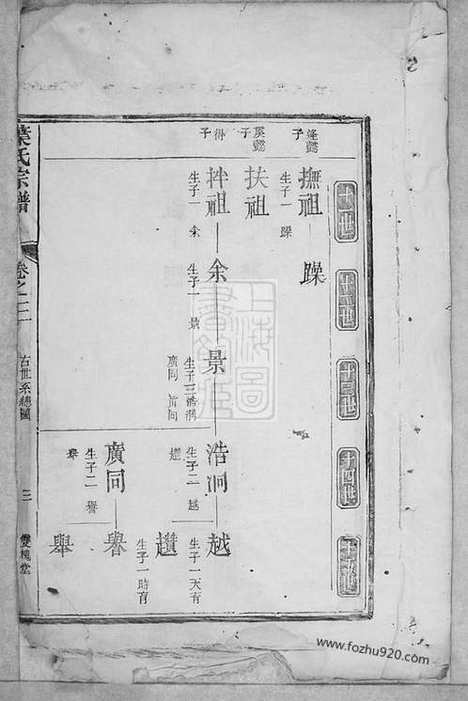 十一世
十二世
十三世
十四世
十五世
逢懿子
撫祖
生子一 躁
躁
溪懿子
扶祖
得子
拌祖
生子一 余
余
生子一 景
景
生子三 浩洞
廣同 首同
浩洞
生子二 越
越
生子一 天有
廣同
生子二 譽
舉
譽
生子一 時有
舉
葉氏宗譜
卷之二
古世系總圖
三
雙槐堂
上海圖書館藏
www.fozhu920.com